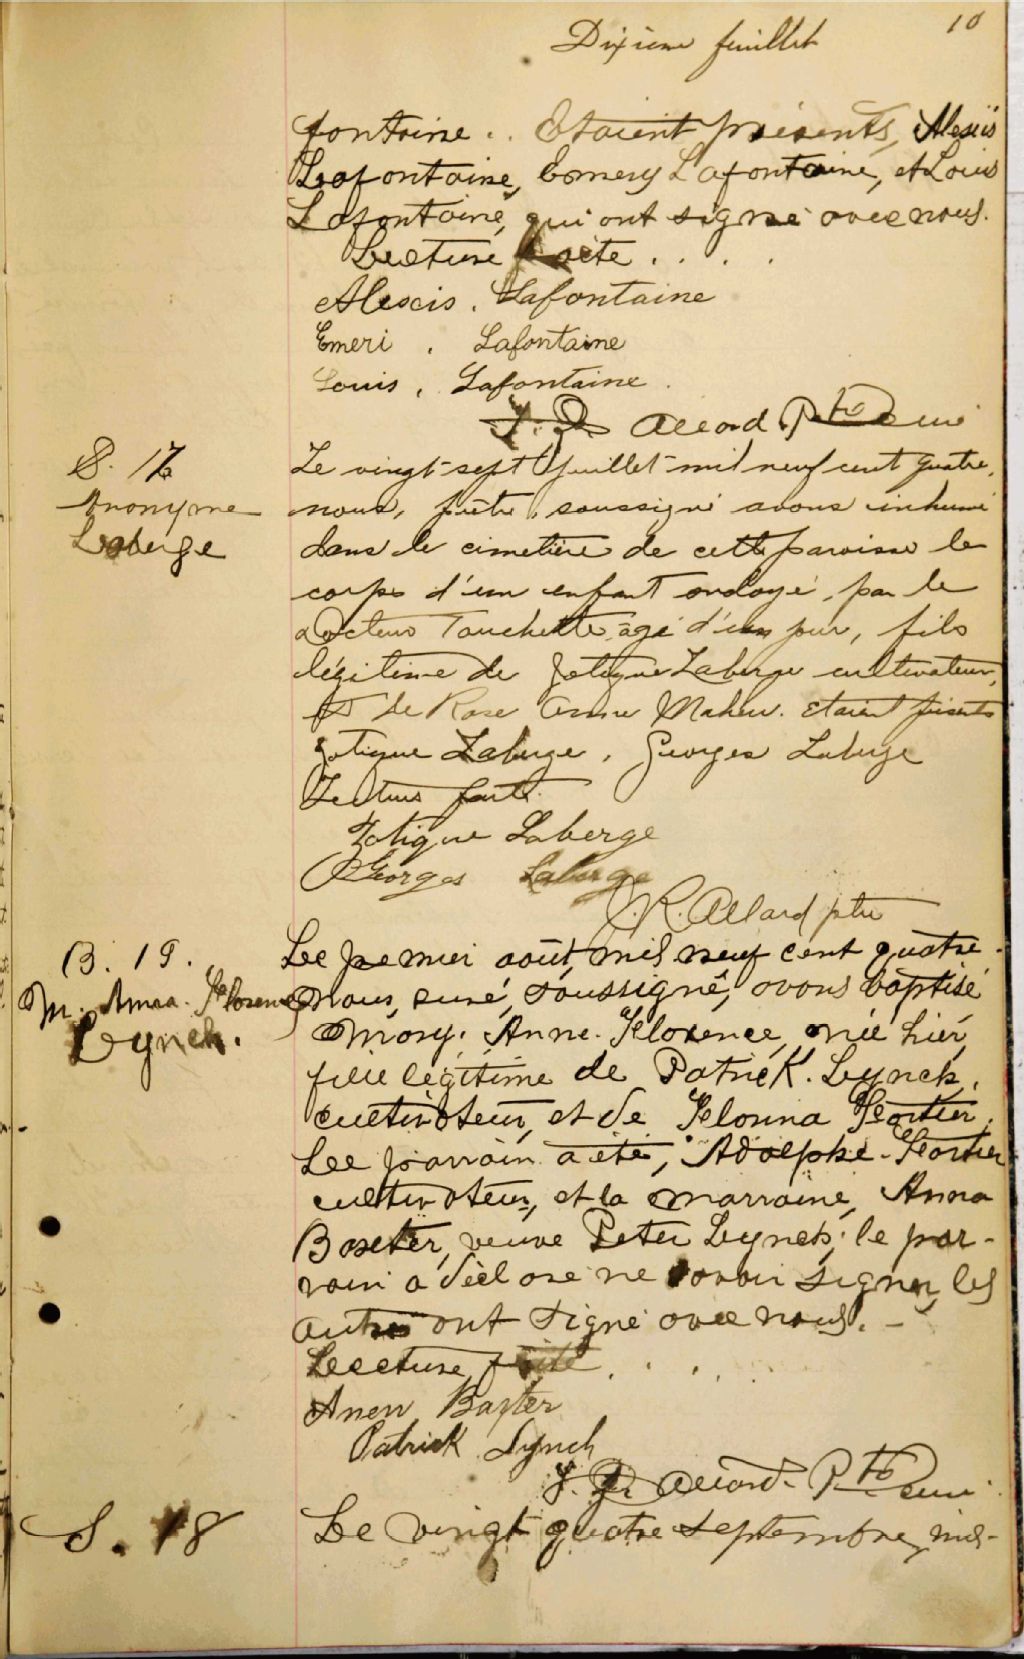 10
Dixième feuillet
fontaine. . Etaient présents, Alexis
Lafontaine, Emery Lafontaine, et Louis
Lafontaine, qui ont signé avec nous.
Lecture faite . . . .
Alexis. Lafontaine
Emeri . Lafontaine
Louis. Lafontaine.
Allard Ptre Curé
S. 17
Anonyme
Laberge
Le vingt-sept juillet mil neuf cent quatre,
nous, prêtre, soussigné avons inhumé
dans le cimetière de cette paroisse le
corps d'un enfant ondoyé, par le
Docteur Touchette, agé d'un jour, fils
légitime de Zotique Laberge cultivateur,
et de Rose Anna Maheu. Etaient présents
Zotique Laberge, Georges Laberge
Lecture faite.
Zotique Laberge
Georges Laberge
J. R. Allard ptre
B. 19.
M. Anna. Florence
Lynch.
Le premier août, mil neuf cent quatre.
Nous, curé, soussigné, avons baptisé
Mary. Anne. Florence, née hier,
fille légitime de Patrick. Lynch,
cultivateur, et de Florina Fortier.
Le parrain a été, Adolphe. Fortier
cultivateur, et la marraine, Anna
Baxter, veuve Peter Lynch; le par-
rain a déclaré ne savoir signer, les
autres ont signé avec nous. -
Lecture faite . . .
Baxter
Patrick Lynch
Allard. Ptre Curé.
S. 18
Le vingt quatre septembre, mil-